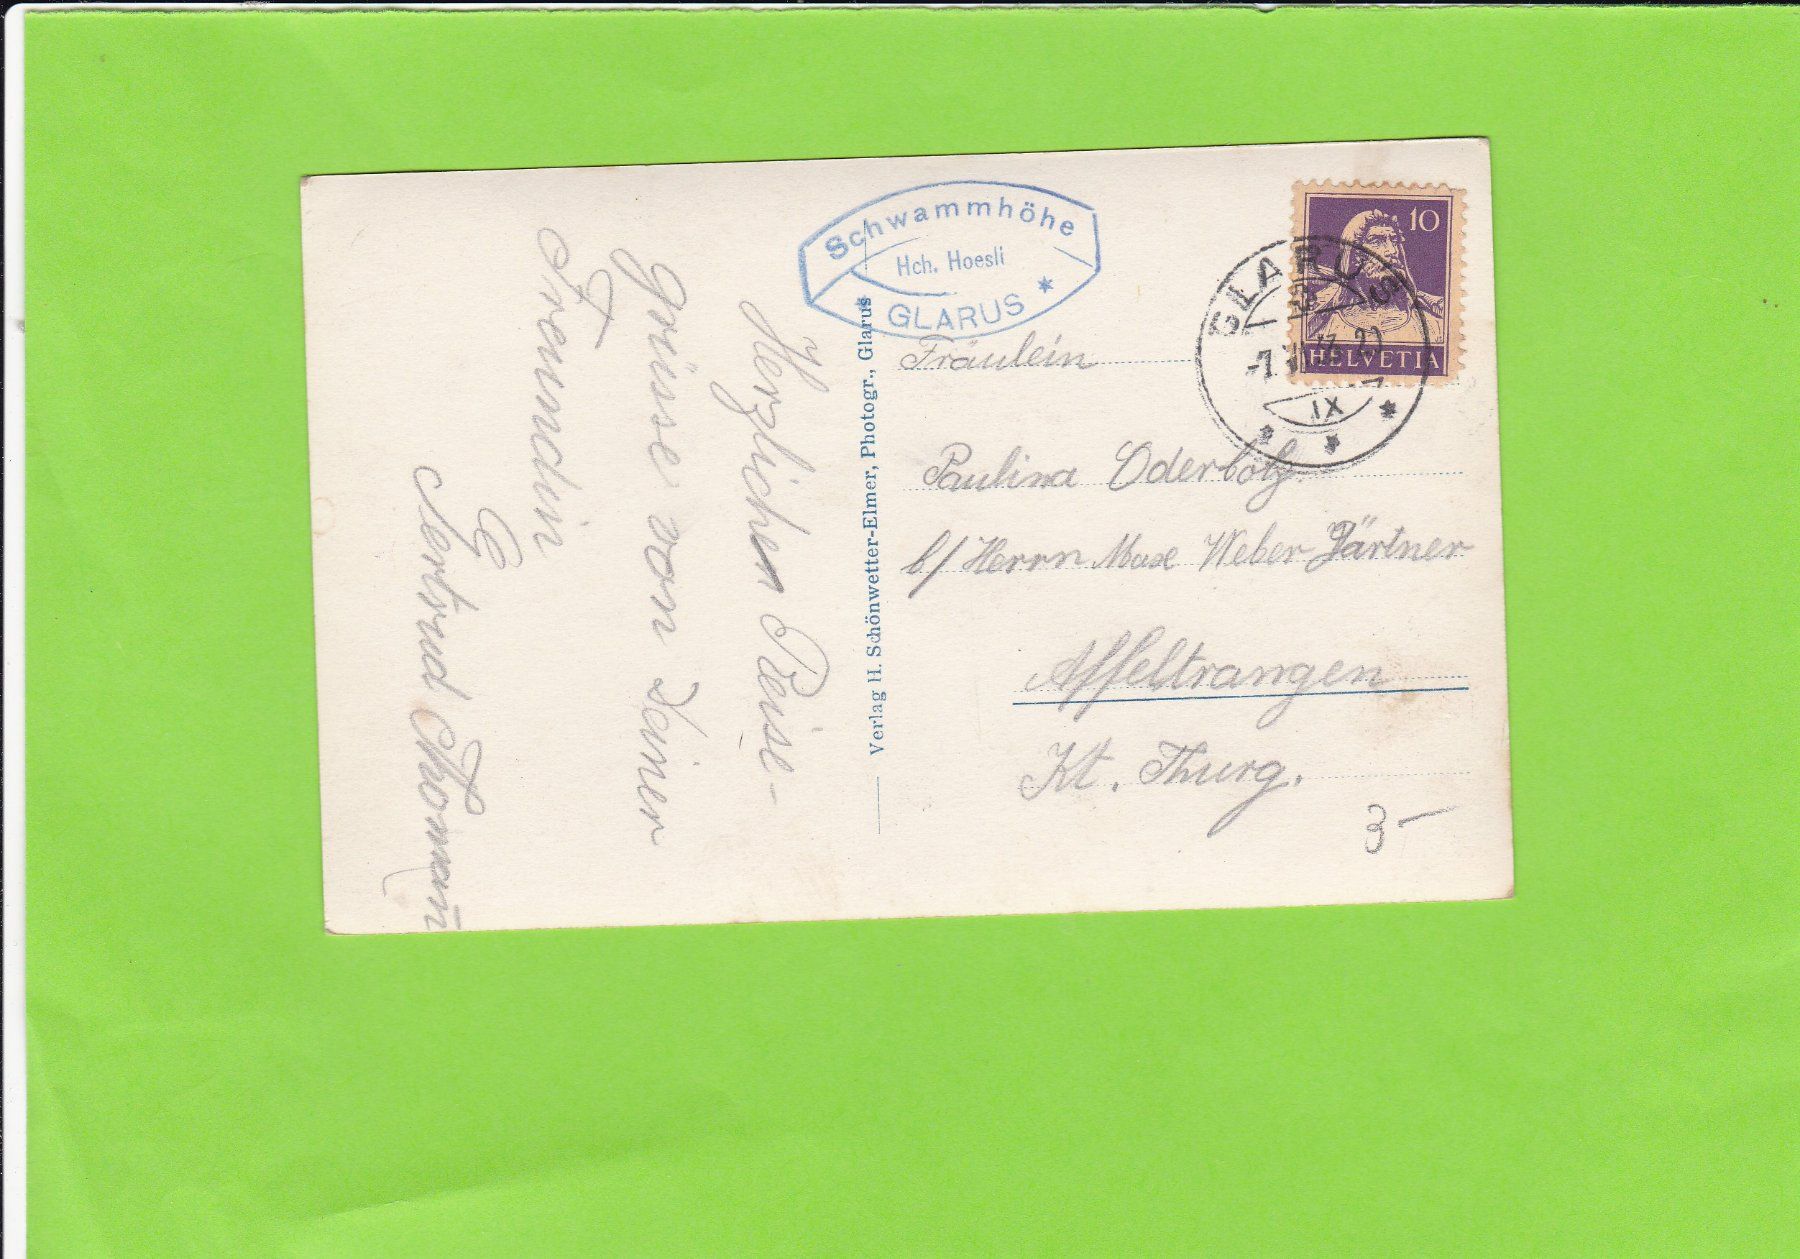 Schwammhöhe
Hch. Hoesli
GLARUS *
10
HELVETIA
GLARUS
IX
Fräulein
Paulina Oderbolz
b/ Herrn Max Weber Gärtner
Affeltrangen
Kt. Thurg.
3 –
Verlag H. Schönwetter-Elmer, Photogr., Glarus
Herzlichen Reise-
grüsse von Deiner
Freundin
Gertrud